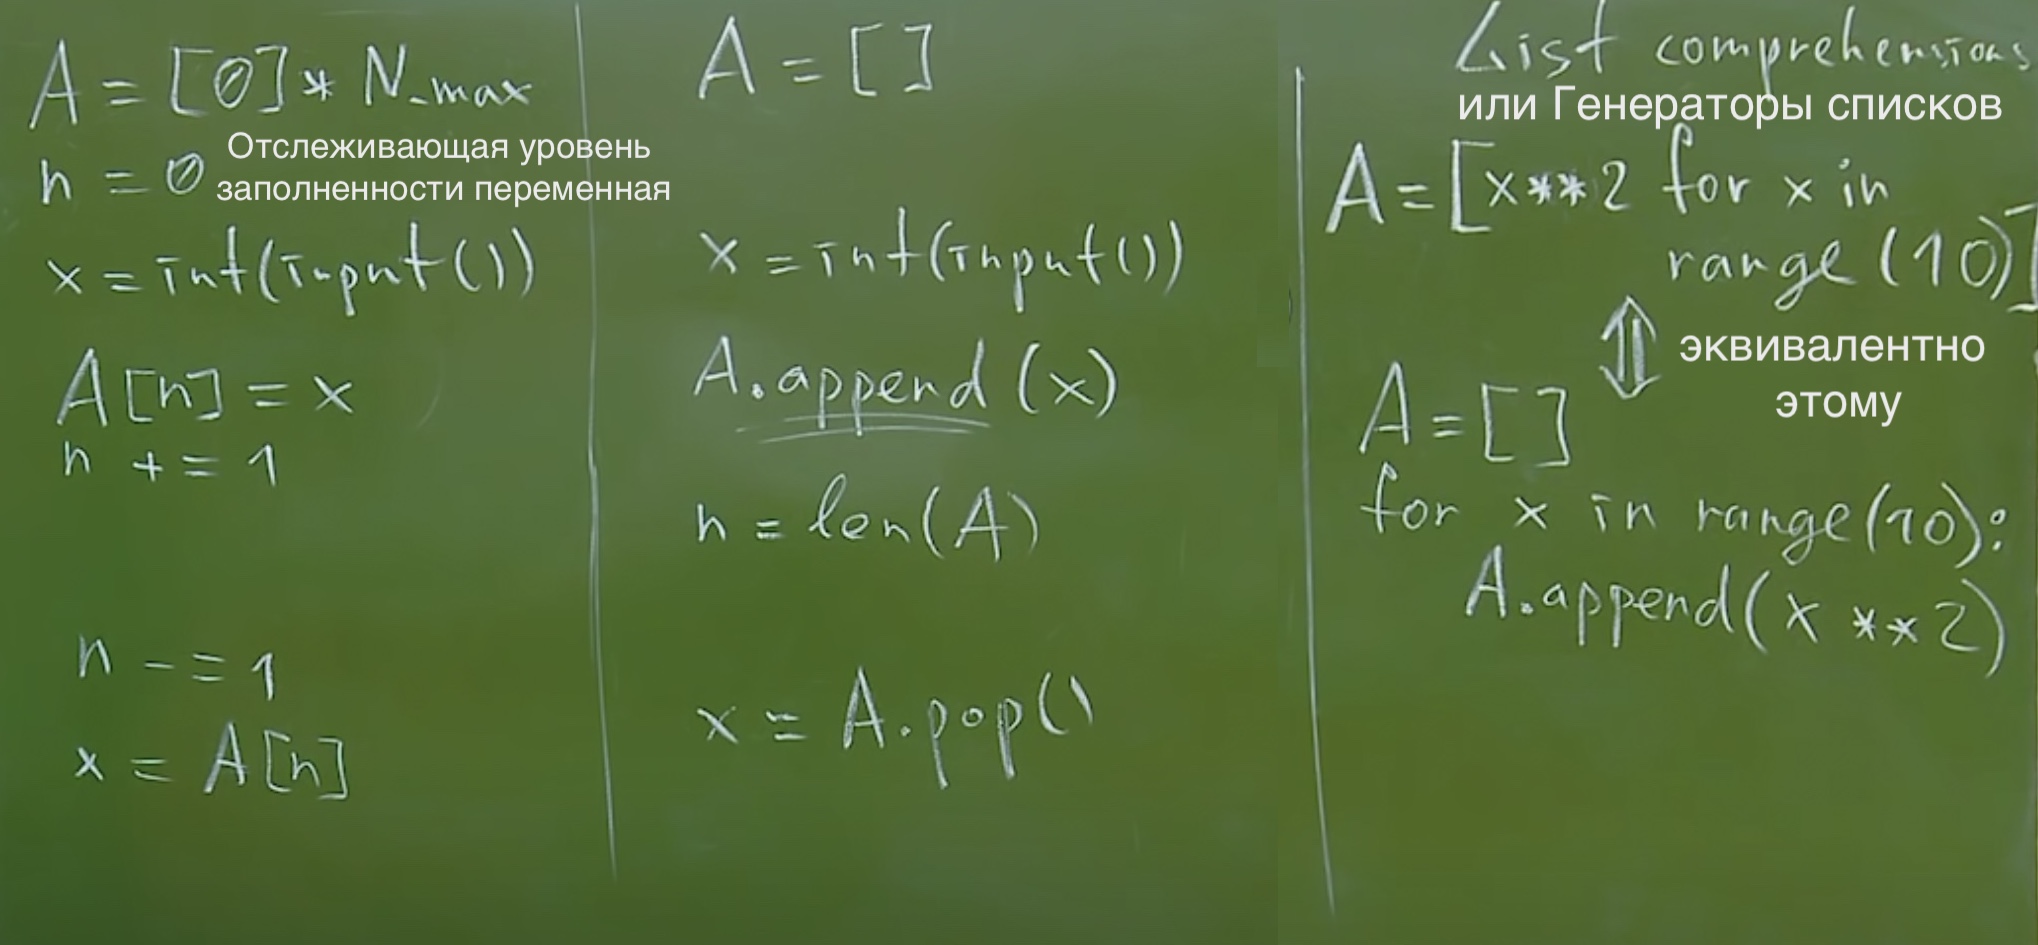 A = [0] * N_max
n = 0
Отслеживающая уровень
заполненности переменная
x = int(input())
A[n] = x
n += 1
n -= 1
x = A[n]
A = []
x = int(input())
A.append(x)
n = len(A)
x = A.pop()
List comprehensions
или Генераторы списков
A = [x**2 for x in
range(10)]
эквивалентно
этому
A = []
for x in range(10):
A.append(x**2)